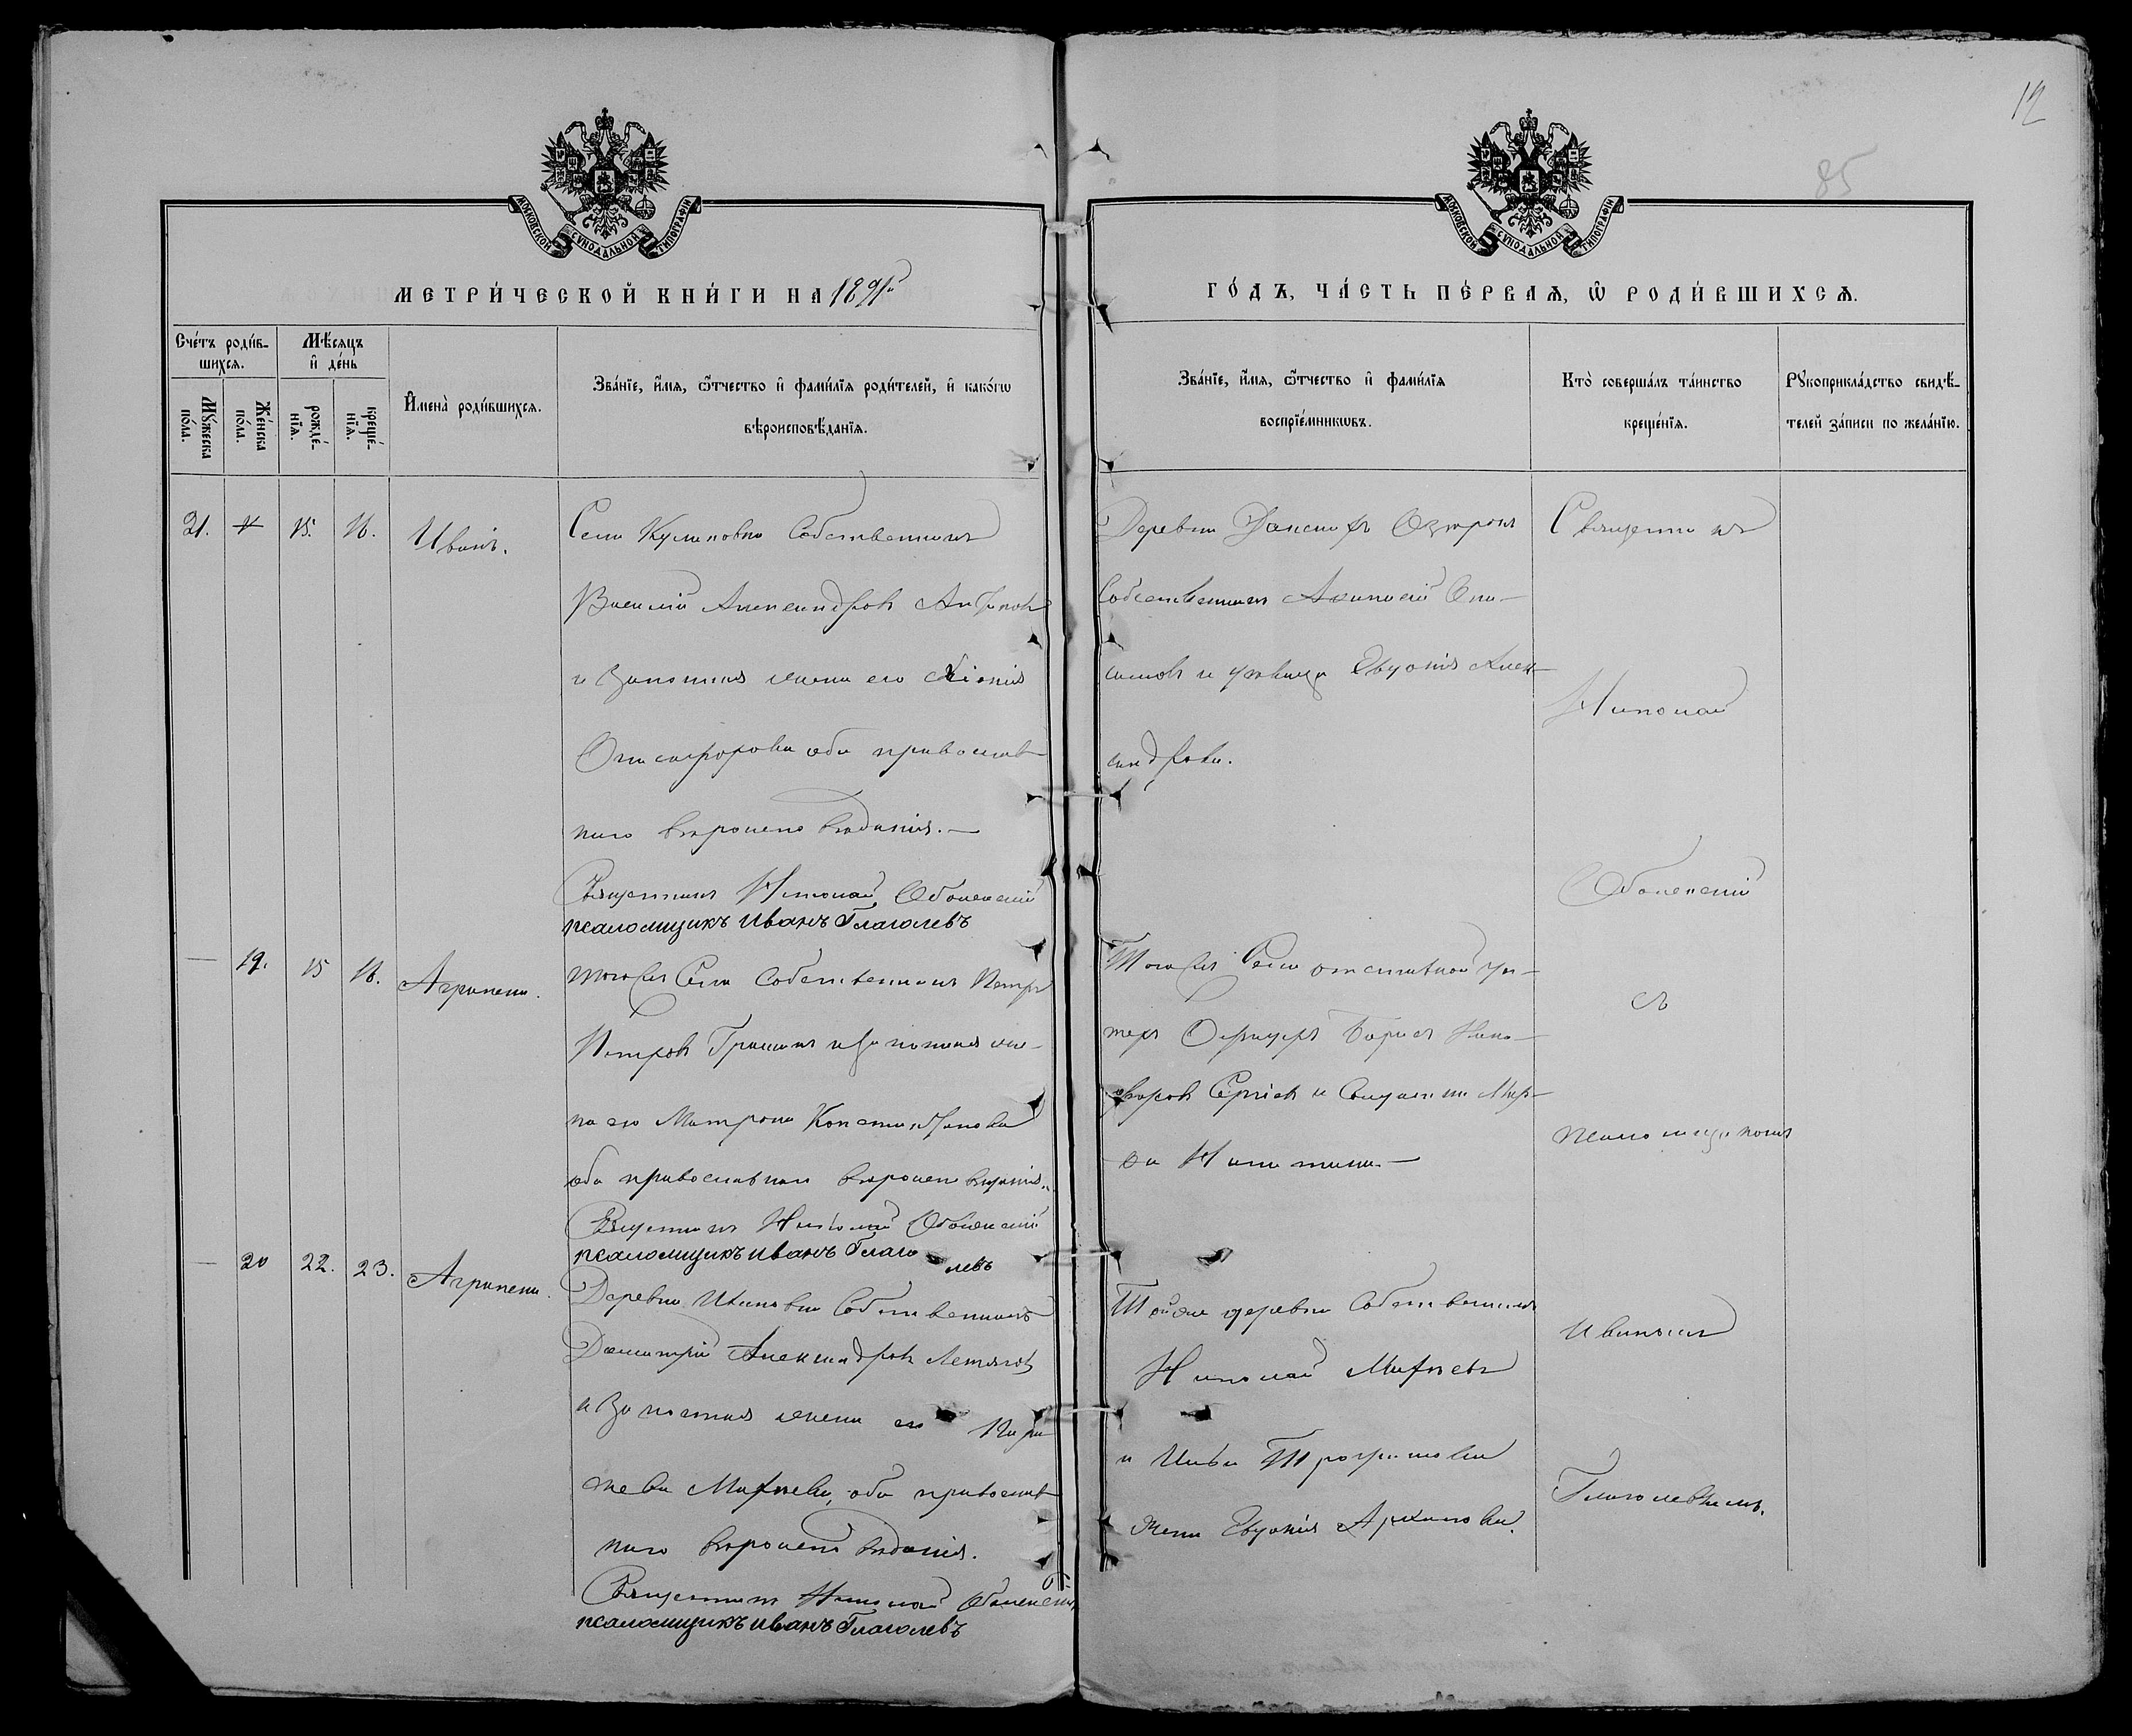 12
85
МОСКОВСКОЙ СУНОДАЛЬНОЙ ТИПОГРАФІИ
МОСКОВСКОЙ СУНОДАЛЬНОЙ ТИПОГРАФІИ
МЕТРИ́ЧЕСКОЙ КНИ́ГИ НА 1891й
ГО́ДЪ, ЧА́СТЬ ПЕ́РВАѦ, Ѡ҆ РОДИ́ВШИХСѦ.
Сче́тъ роди́в-
шихсѧ.
Мѣ́сѧцъ
и҆ де́нь
Мꙋ́жеска
по́ла.
Же́нска
по́ла.
рожде́-
нїѧ.
креще́-
нїѧ.
И҆мена̀ роди́вшихсѧ.
Зва́нїе, и҆́мѧ, ѻ҆́тчество и҆ фамі́лїѧ роди́телей, и҆ како́гѡ
вѣроисповѣ́данїѧ.
Зва́нїе, и҆́мѧ, ѻ҆́тчество и҆ фамі́лїѧ
воспрїе́мникѡвъ.
Кто̀ соверша́лъ та́инство
креще́нїѧ.
Рꙋкоприкла́дство свидѣ́-
телей за́писи по жела́нїю.
21. 15. 16. Иванъ.
Села собственникъ
Василій Александровъ
и законная жена его Хіонія
оба православ
наго вѣроисповѣданія.—
Священникъ Николай Оболенскій
псаломщикъ Иванъ Глаголевъ
Деревни
собственникъ
и Евдокія Алек-
сандрова.
Священникъ
Николай
Оболенскій
съ
псаломщикомъ
Иваномъ
Глаголевымъ.
— 19. 15 16. Агрипена.
того же Села собственникъ Петръ
Петровъ Гришинъ и законная же-
на его Матрона Константинова
оба православнаго вѣроисповѣданія.
Священникъ Николай Оболенскій
псаломщикъ Иванъ Глаго
левъ
Того же Села отставной ун-
теръ Офицеръ Борисъ Ники-
форовъ Сергіевъ и Мар-
ѳа Никитина.—
— 20 22. 23. Агрипена.
Деревни Ивановки собственникъ
Димитрій Александровъ
и законная жена его
оба православ
наго вѣроисповѣданія.
Священникъ Николай Оболенскій
псаломщикъ Иванъ Глаголевъ
Той же деревни собственникъ
Николай
и
жена Евдокія Архипова.